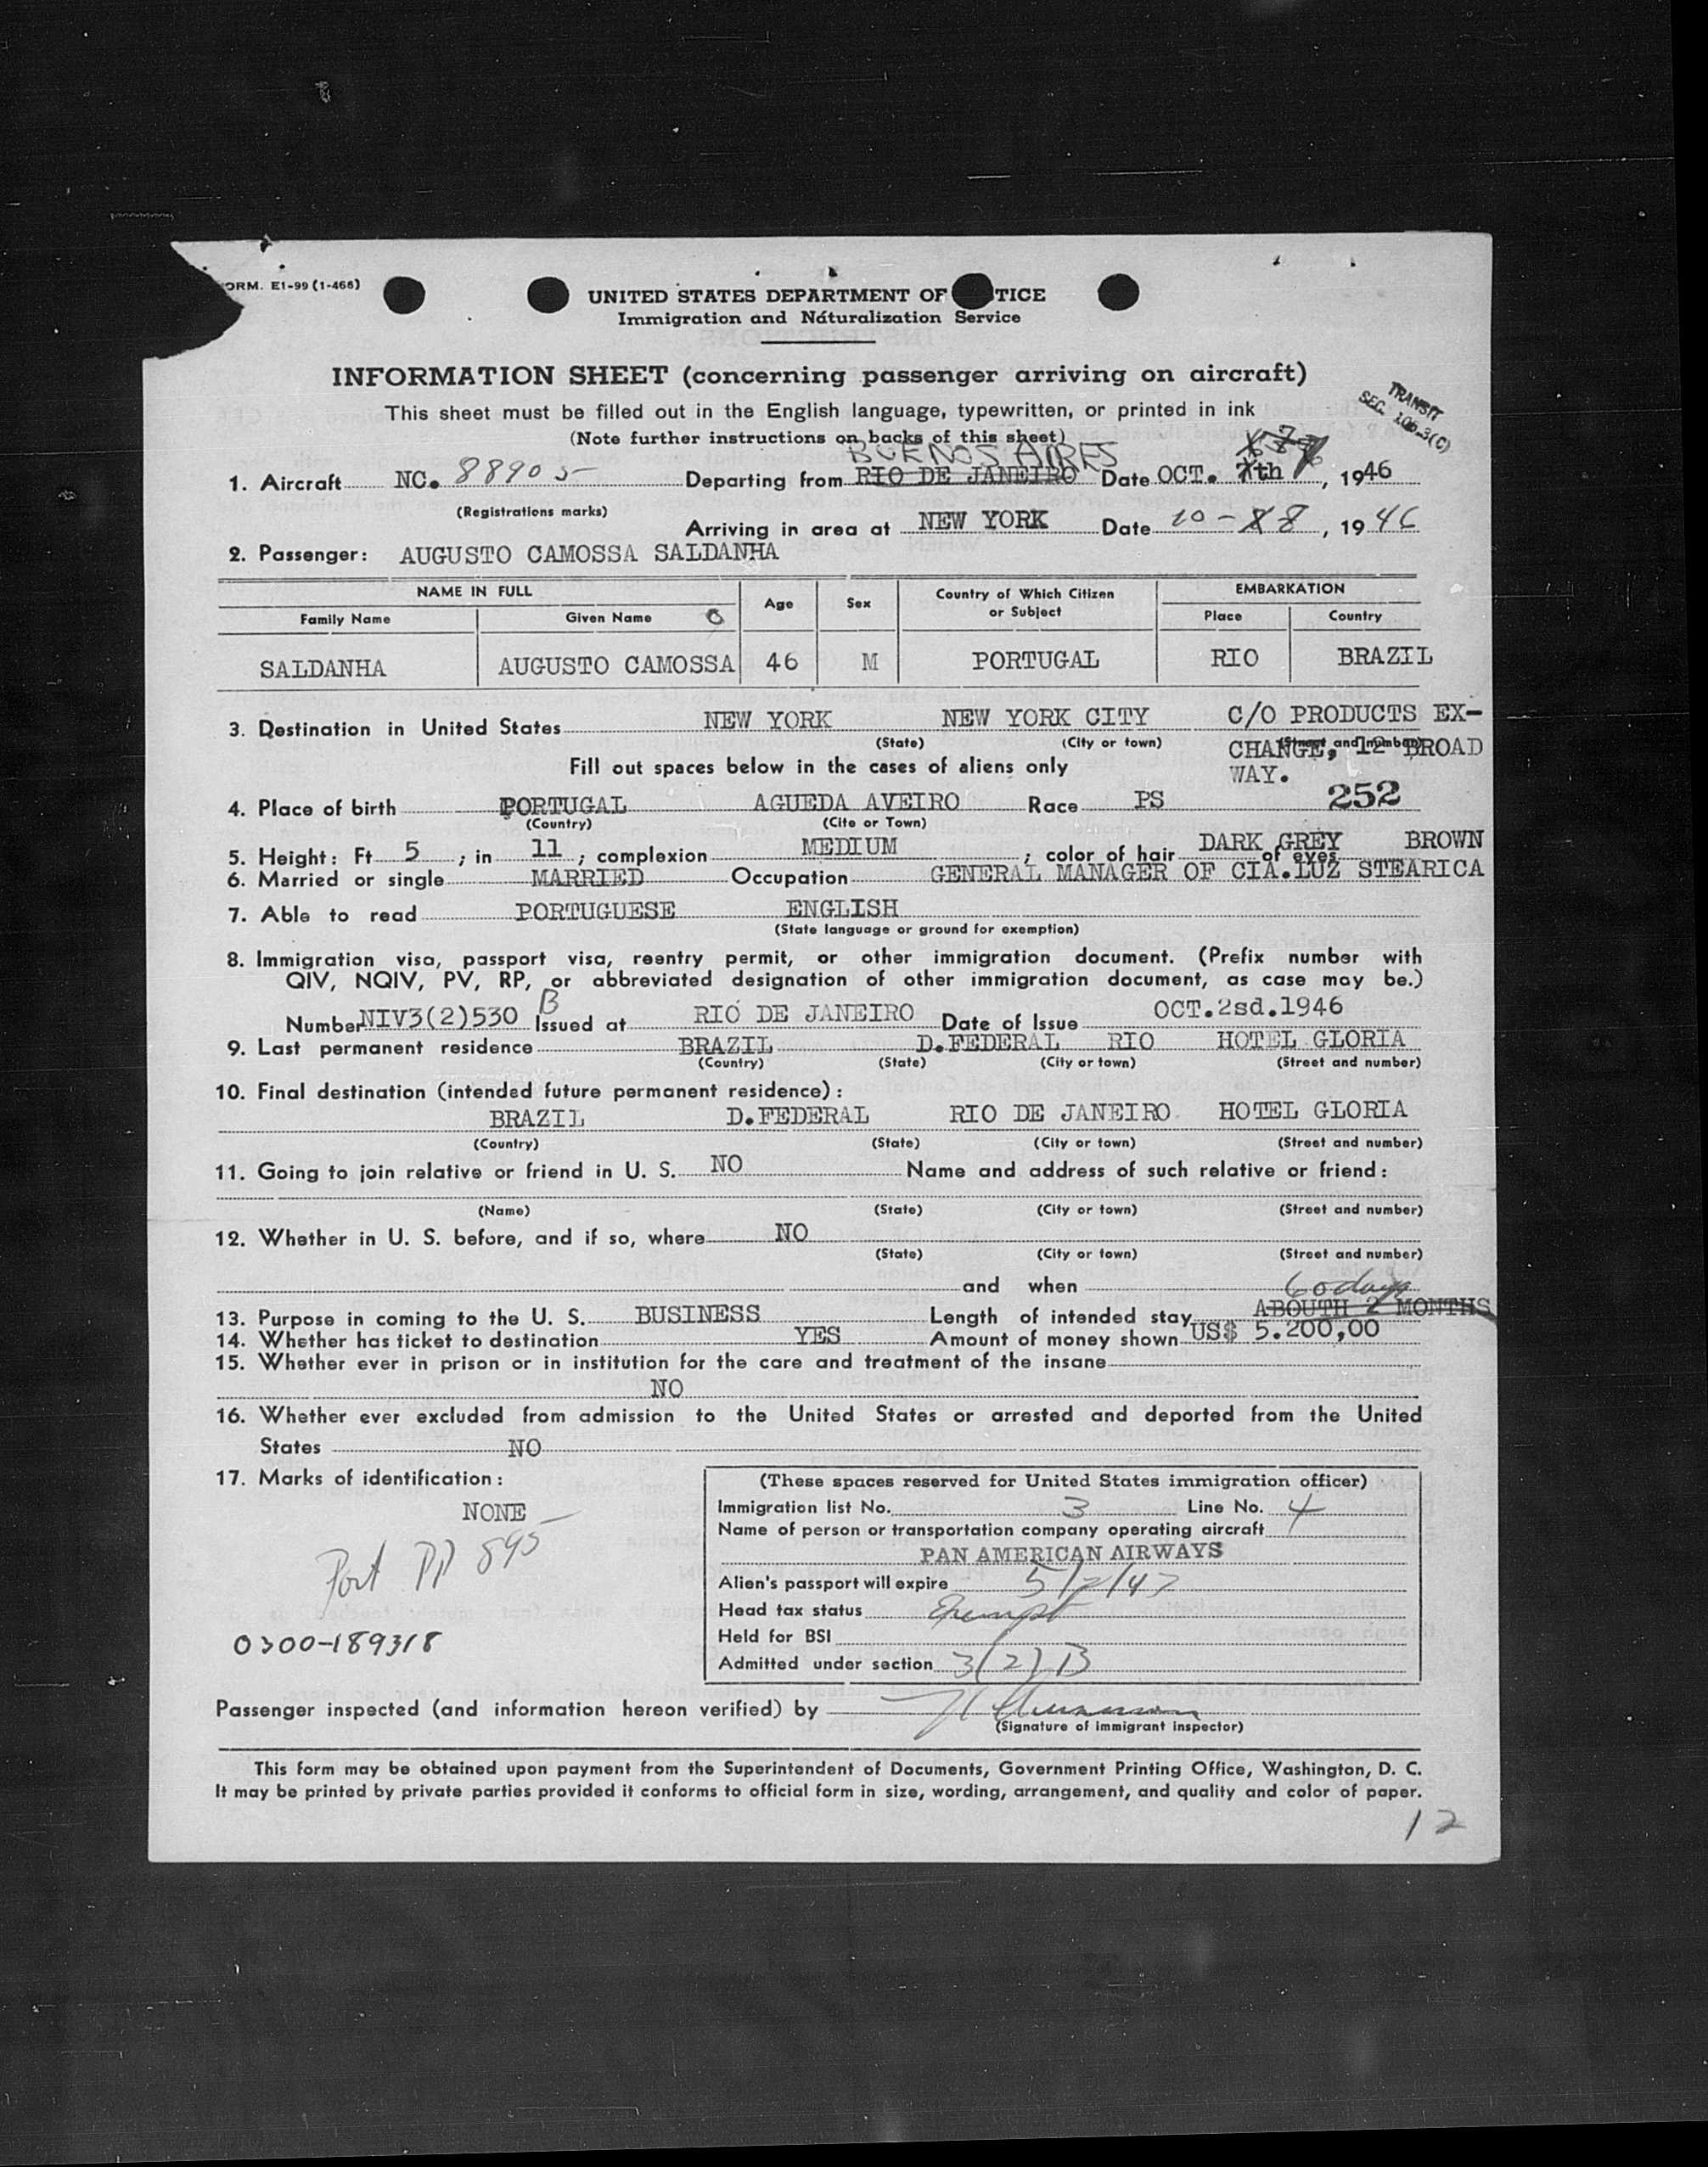 ORM. E1-99 (1-466)
UNITED STATES DEPARTMENT OF TICE
Immigration and Naturalization Service
INFORMATION SHEET (concerning passenger arriving on aircraft)
This sheet must be filled out in the English language, typewritten, or printed in ink
TRANSIT
SEC. 106.3(C)
(Note further instructions on backs of this sheet)
BUENOS AIRES
1. Aircraft NC. 88905 Departing from RIO DE JANEIRO Date OCT. 7th, 1946
(Registrations marks)
Arriving in area at NEW YORK Date 10-8, 1946
2. Passenger: AUGUSTO CAMOSSA SALDANHA
NAME IN FULL Age Sex Country of Which Citizen or Subject EMBARKATION
Family Name Given Name Place Country
SALDANHA AUGUSTO CAMOSSA 46 M PORTUGAL RIO BRAZIL
3. Destination in United States NEW YORK NEW YORK CITY C/O PRODUCTS EX-
(State) (City or town) (Street and number)
CHANGE, 12 BROAD
Fill out spaces below in the cases of aliens only WAY.
4. Place of birth PORTUGAL AGUEDA AVEIRO Race PS 252
(Country) (Cite or Town)
5. Height: Ft 5; in 11; complexion MEDIUM; color of hair DARK GREY of eyes BROWN
6. Married or single MARRIED Occupation GENERAL MANAGER OF CIA.LUZ STEARICA
7. Able to read PORTUGUESE ENGLISH
(State language or ground for exemption)
8. Immigration visa, passport visa, reentry permit, or other immigration document. (Prefix number with
QIV, NQIV, PV, RP, or abbreviated designation of other immigration document, as case may be.)
Number NIV3(2)530 B Issued at RIO DE JANEIRO Date of Issue OCT.2sd.1946
9. Last permanent residence BRAZIL D.FEDERAL RIO HOTEL GLORIA
(Country) (State) (City or town) (Street and number)
10. Final destination (intended future permanent residence):
BRAZIL D.FEDERAL RIO DE JANEIRO HOTEL GLORIA
(Country) (State) (City or town) (Street and number)
11. Going to join relative or friend in U. S. NO Name and address of such relative or friend:
(Name) (State) (City or town) (Street and number)
12. Whether in U. S. before, and if so, where NO
(State) (City or town) (Street and number)
and when
60 days
13. Purpose in coming to the U. S. BUSINESS Length of intended stay ABOUTH 2 MONTHS
14. Whether has ticket to destination YES Amount of money shown US$ 5.200,00
15. Whether ever in prison or in institution for the care and treatment of the insane
NO
16. Whether ever excluded from admission to the United States or arrested and deported from the United
States NO
17. Marks of identification:
NONE
Port PP 895
0300-189318
(These spaces reserved for United States immigration officer)
Immigration list No. 3 Line No. 4
Name of person or transportation company operating aircraft
PAN AMERICAN AIRWAYS
Alien's passport will expire 5/2/47
Head tax status Exempt
Held for BSI
Admitted under section 3(2)B
Passenger inspected (and information hereon verified) by
(Signature of immigrant inspector)
This form may be obtained upon payment from the Superintendent of Documents, Government Printing Office, Washington, D. C.
It may be printed by private parties provided it conforms to official form in size, wording, arrangement, and quality and color of paper.
12